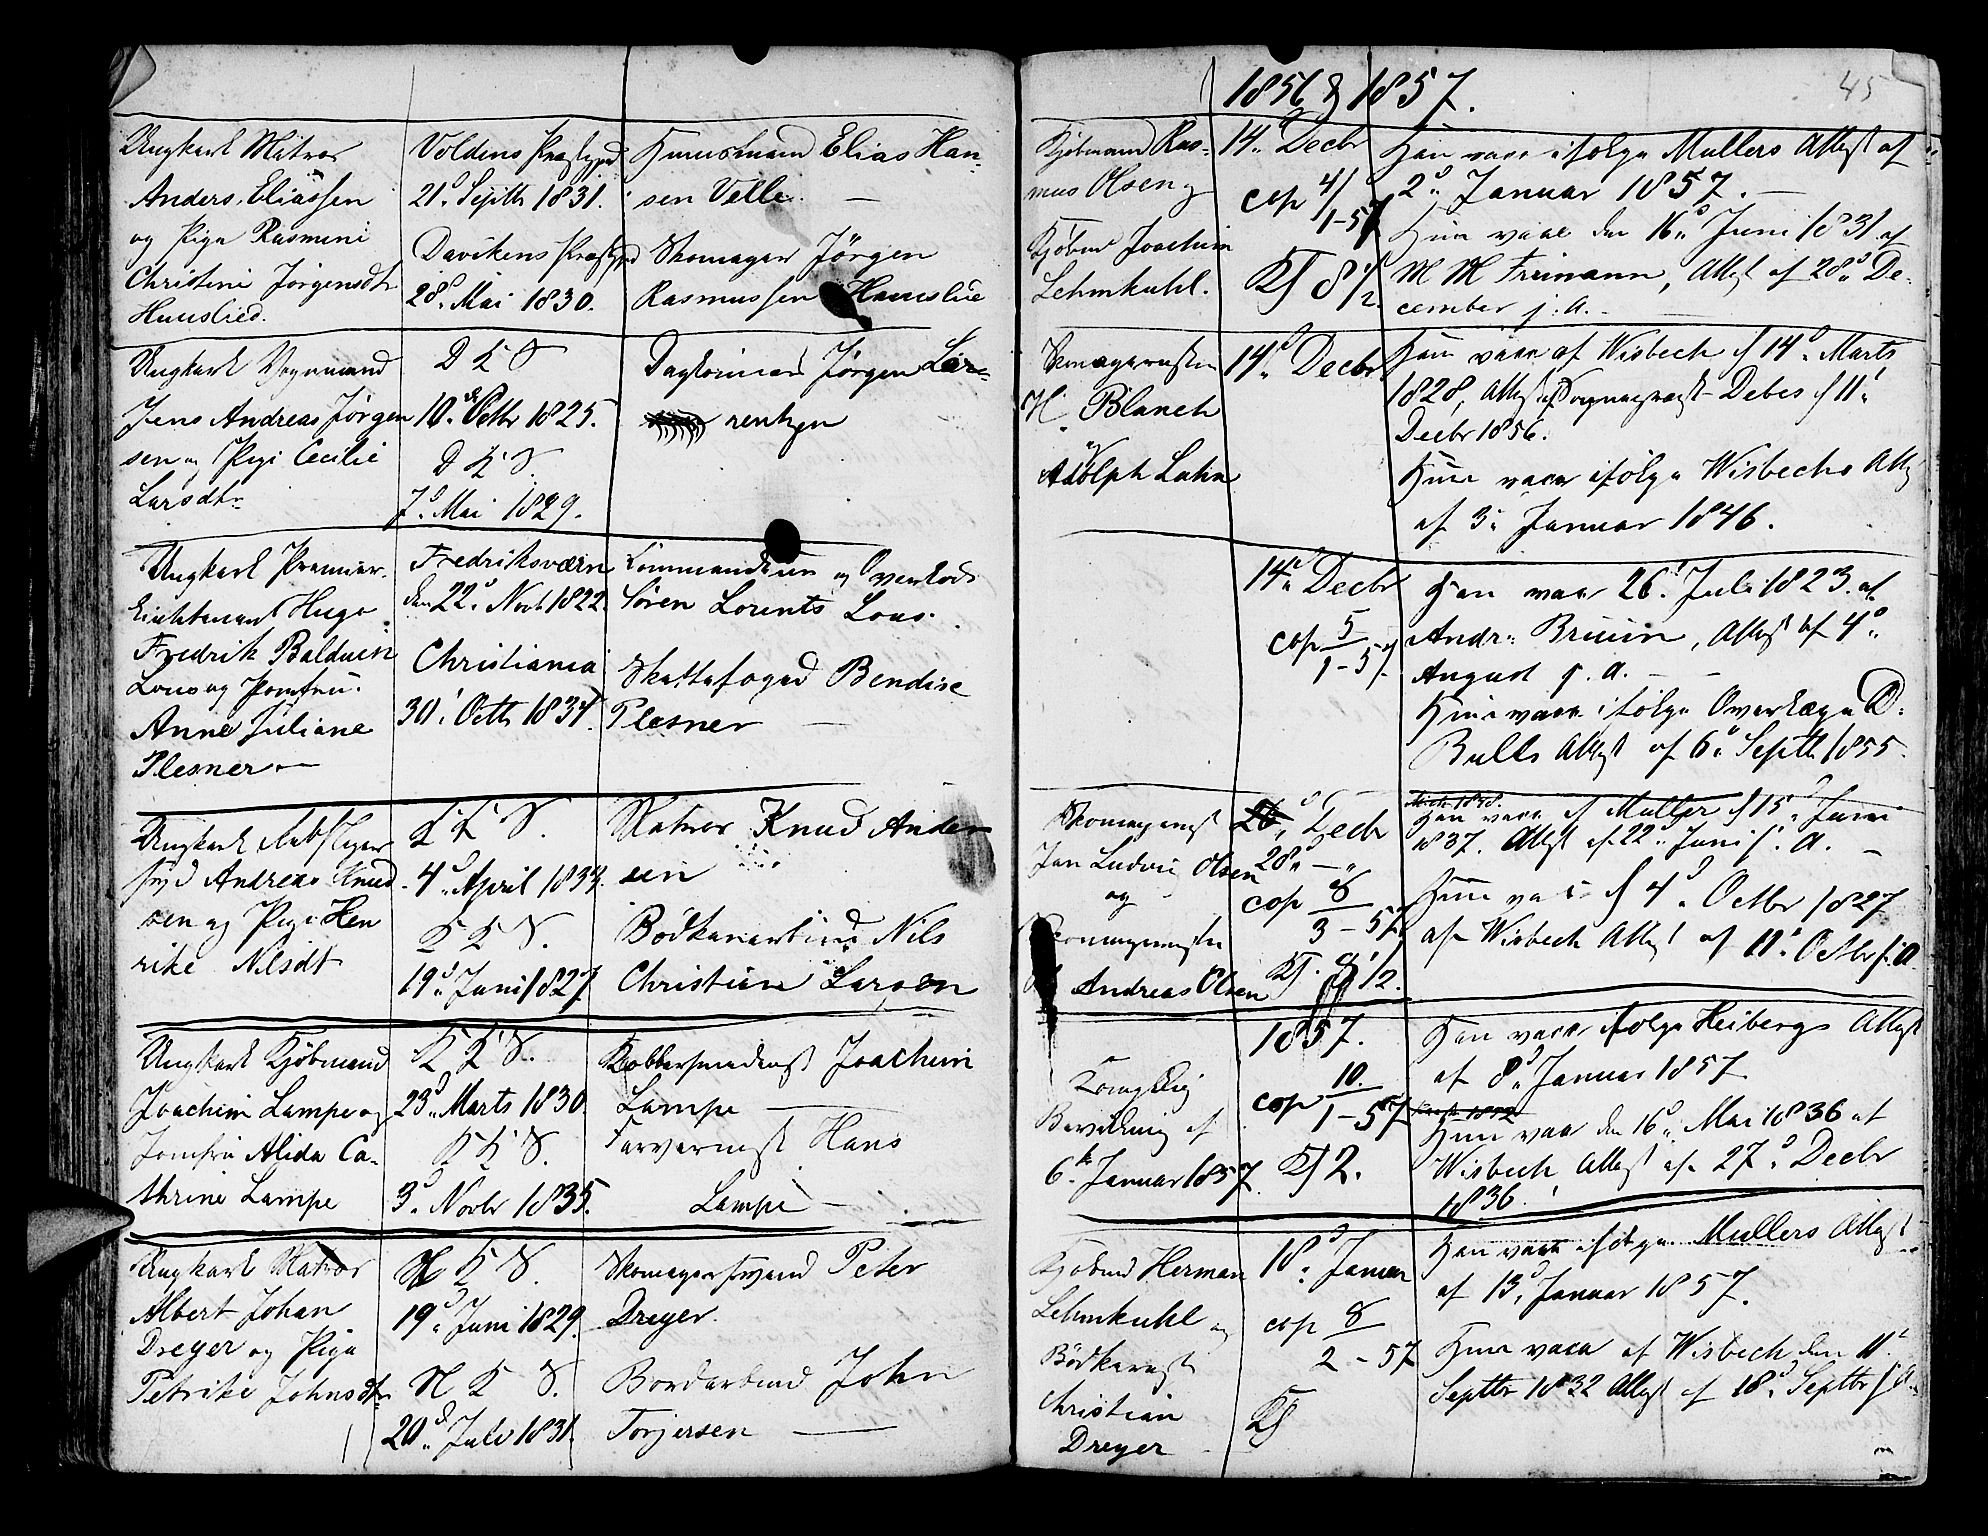 1856 & 1857.
45
Ungkarl Matros
Anders Eliassen
og Pige Rasmine
Christine Jørgensdtr
Voldens Præstgjeld
21.d Septbr 1831.
Davikens Præstgjeld
28.d Mai 1830.
Huusmand Elias Han-
sen Velle. —
Skomager Jørgen
Rasmussen
Kjøbmand Ras-
mus Olsen og
Kjøbmd Joachim
Lehmkuhl.
14.d Decbr
cop 4/
1-57
Han vacc ifølge Mullers Attest af
2.d Januar 1857. —
Hun vacc den 16.d Juni 1831 af
M M Freimann, Attest af 28.d De-
cember s. A. —
Ungkarl
Jens Andreas Jørgen
sen og Pige Cecilie
Larsdtr
D K S
10.de Octbr 1825.
D K S.
7.d Mai 1829.
Jørgen Lau-
rentzen
Skomagermester
H. Blanch
og
Adolph Lahn
14.d Decbr
Han vacc af Wisbech d 14.d Marts
1828, Attest af Debes d 11.t
Decbr 1856.
Hun vacc ifølge Wisbechs Att.
af 3.d Januar 1846.
Ungkarl Premier-
lieutenant Hugo
Fredrik Balduin
Lous og Jomfru
Anne Juliane
Plesner —
Fredriksværn
den 22.d Novb 1822
Christiania
30.t Octb 1834.
og Overlods
Søren Lorents Lous.
Skattefoged Bendixe
Plesner —
14.d Decbr
cop 5
1-57.
Han vacc 26.t Juli 1823 af
Andr. Bruun, Attest af 4.d
August s. A. —
Hun vacc ifølge Overlæge D.
Bulls Attest af 6.d Septb. 1855.
Ungkarl
Andreas Knud-
sen og Pige Hen
rike Nilsdt
K K S.
4.d April 1834.
K K S.
19.d Juni 1827.
Matros Knud Ander
sen
Bødkerarbeid. Nils
Christian Larsen
Skomagermest
Jan Ludvig Olsen
og
Skomagermester
Andreas Olsen
Decbr
28.d — "
cop 8
3-57.
Han vacc af Muller d 15.d Juni
1837. Attest af 22.d Juni s. A. —
Hun vac d 4.d Octbr 1827
af Wisbech Attest af 11.t Octbr s. A.
Ungkarl Kjøbmand
Joachim Lampe og
Jomfru Alida Ca-
thrine Lampe
K K S.
23.d Marts 1830
K K S.
3.d Novbr 1835.
Kobbersmedmest Joachim
Lampe —
Farvermest Hans
Lampe —
Kongelig
Bevilling af
6.te Januar 1857.
1857.
cop 10.
1-57
KJ 2.
Han vacc ifølge Heibergs Attest
af 8.d Januar 1857.
Hun vacc den 16.d Mai 1836 af
Wisbech, Attest af 27.d Decbr
1836.
Ungkarl Matros
Albert Johan
Dreyer og Pige
Petrike Johnsdtr
N K S.
19.d Juni 1829.
N K S.
20.d Juli 1831.
Skomagersvend Peter
Dreyer.
Bordarbeid John
Torjersen —
Kjøbmd Herman
Lehmkuhl og
Bødkermest
Christian
Dreyer
18.d Januar
cop 8
2-57
KJ
Han vacc ifølge Mullers Attest
af 13.d Januar 1857.
Hun vacc af Wisbech den 11.t
Septbr 1832 Attest af 18.d Septbr s. A.